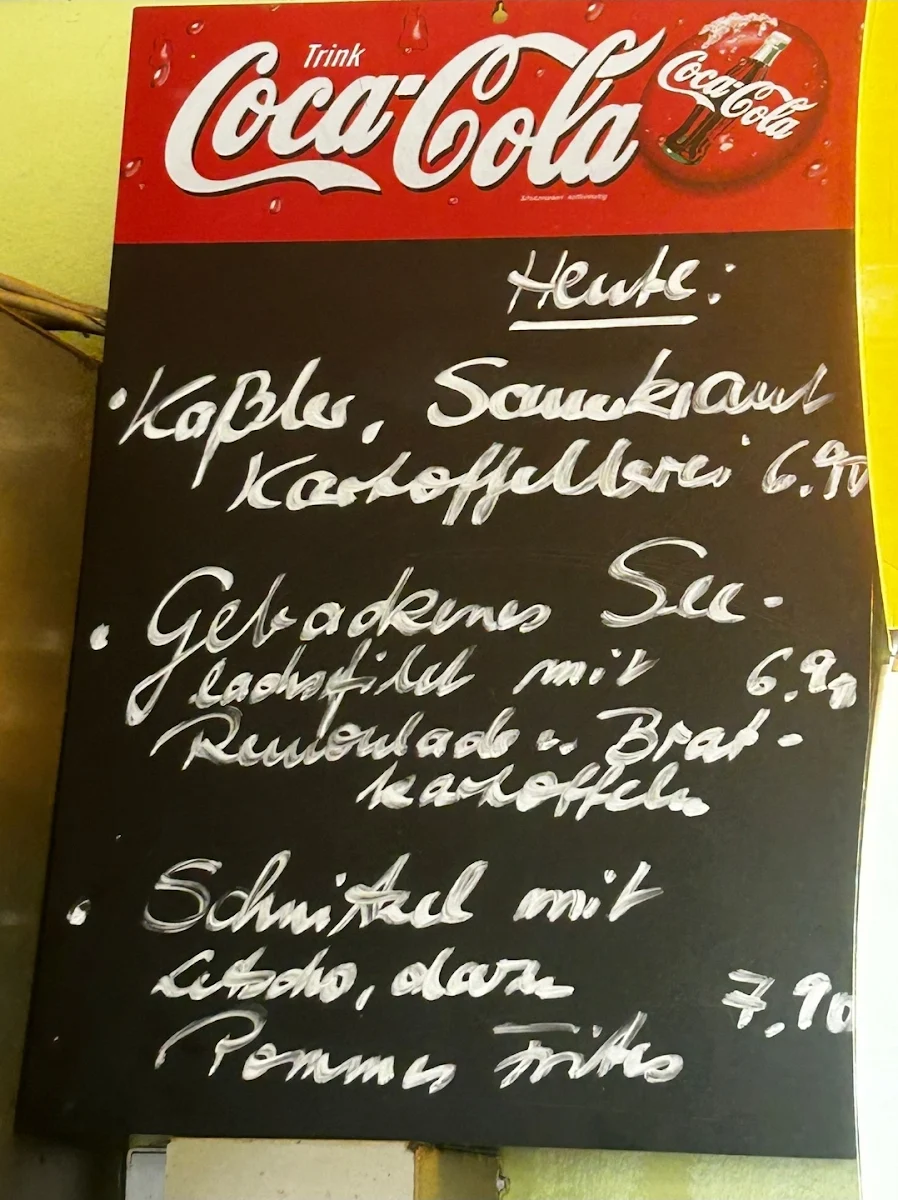 Trink
Coca-Cola
Coca-Cola
Heute:
• Kaßler, Sauerkraut
Kartoffelbrei 6.90
• Gebackenes See-
lachsfilet mit 6.90
Remoulade u. Brat-
kartoffeln
• Schnitzel mit
Letscho, dazu 7,90
Pommes Frites